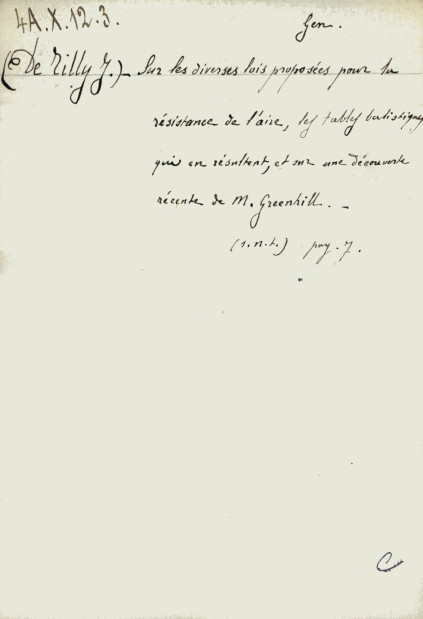 4A.X.12.3.
Gen.
(De Tilly J.) - Sur les diverses lois proposées pour la
résistance de l'aire, les tables balistiques
qui en résultent, et sur une découverte
récente de M. Greenhill. -
(s.n.t.) pag. 7.
C